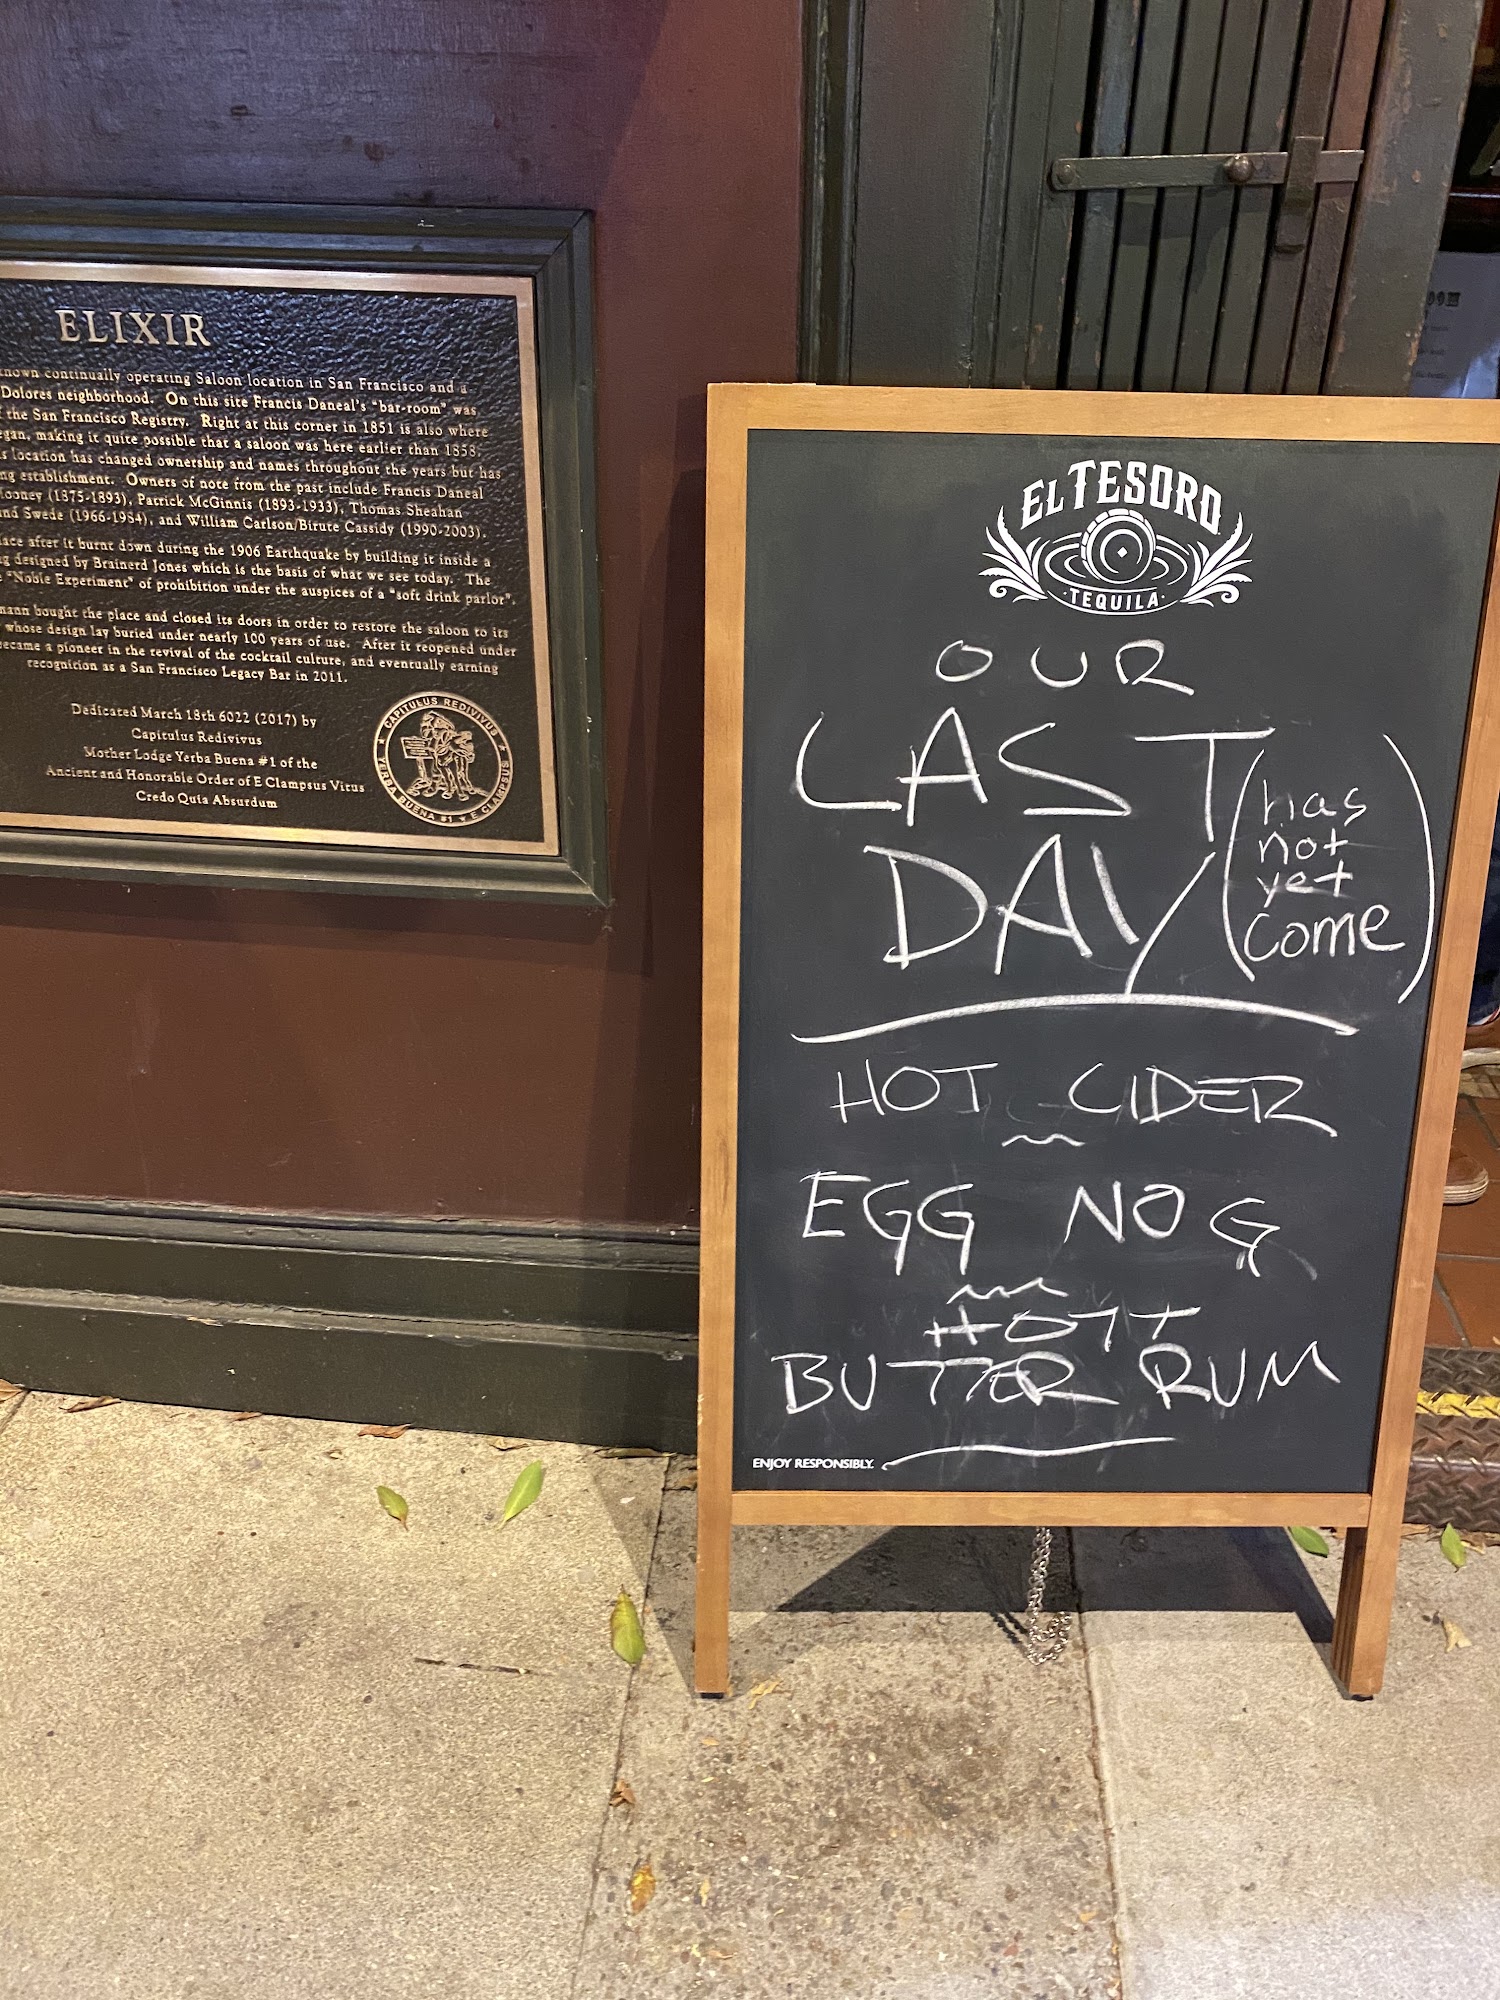 ELIXIR
known continually operating Saloon location in San Francisco and a
Dolores neighborhood. On this site Francis Daneal's "bar-room" was
the San Francisco Registry. Right at this corner in 1851 is also where
making it quite possible that a saloon was here earlier than 1858.
location has changed ownership and names throughout the years but has
establishment. Owners of note from the past include Francis Daneal
(1875-1893), Patrick McGinnis (1893-1933), Thomas Sheahan
Swede (1966-1984), and William Carlson/Birute Cassidy (1990-2003).
after it burnt down during the 1906 Earthquake by building it inside a
designed by Brainerd Jones which is the basis of what we see today. The
"Noble Experiment" of prohibition under the auspices of a "soft drink parlor".
bought the place and closed its doors in order to restore the saloon to its
whose design lay buried under nearly 100 years of use. After it reopened under
became a pioneer in the revival of the cocktail culture, and eventually earning
recognition as a San Francisco Legacy Bar in 2011.
Dedicated March 18th 6022 (2017) by
Capitulus Redivivus
Mother Lodge Yerba Buena #1 of the
Ancient and Honorable Order of E Clampsus Vitus
Credo Quia Absurdum
CAPITULUS REDIVIVUS
YERBA BUENA #1 ★ E CLAMPSUS
EL TESORO
·TEQUILA·
OUR
LAST
DAY
(has
not
yet
come)
HOT CIDER
EGG NOG
HOTT
BUTTER RUM
ENJOY RESPONSIBLY.